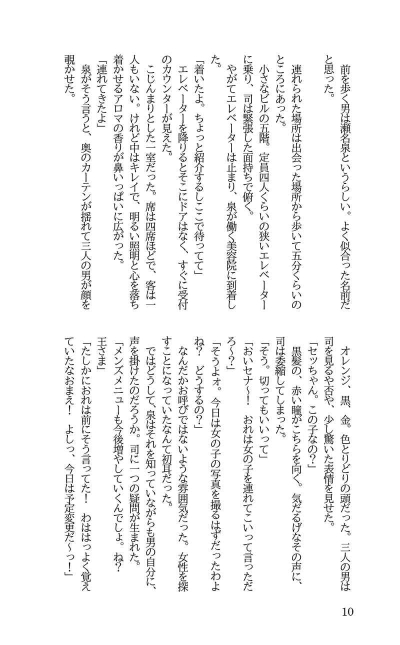 前を歩く男は瀬名泉というらしい。よく似合った名前だ
と思った。
　連れられた場所は出会った場所から歩いて五分くらいの
ところにあった。
　小さなビルの五階。定員四人くらいの狭いエレベーター
に乗り、司は緊張した面持ちで俯く。
　やがてエレベーターは止まり、泉が働く美容院に到着し
た。
「着いたよ。ちょっと紹介するしここで待ってて」
　エレベーターを降りるとそこにドアはなく、すぐに受付
のカウンターが見えた。
　こじんまりとした一室だった。席は四席ほどで、客は一
人もいない。けれど中はキレイで、明るい照明と心を落ち
着かせるアロマの香りが鼻いっぱいに広がった。
「連れてきたよ」
　泉がそう言うと、奥のカーテンが揺れて三人の男が顔を
覗かせた。
　オレンジ、黒、金。色とりどりの頭だった。三人の男は
司を見るや否や、少し驚いた表情を見せた。
「セッちゃん。この子なの？」
　黒髪の、赤い瞳がこちらを向く。気だるげなその声に、
司は委縮してしまった。
「そう。切ってもいいって」
「おいセナ〜！　おれは女の子を連れてこいって言っただ
ろ〜？」
「そうよォ。今日は女の子の写真を撮るはずだったわよ
ね？　どうするの？」
　なんだかお呼びではないような雰囲気だった。女性を探
すことになっていたなんて初耳だった。
　ではどうして、泉はそれを知っていながらも男の自分に、
声を掛けたのだろうか。司に一つの疑問が生まれた。
「メンズメニューも今後増やしていくんでしょ。ね？
王さま」
「たしかにおれは前にそう言ってた！　わははっよく覚え
ていたなおまえ！　よしっ、今日は予定変更だ〜っ！」
10